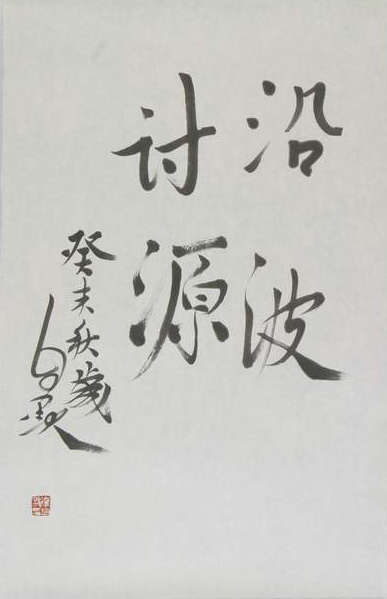 沿波
讨源
癸未秋歲